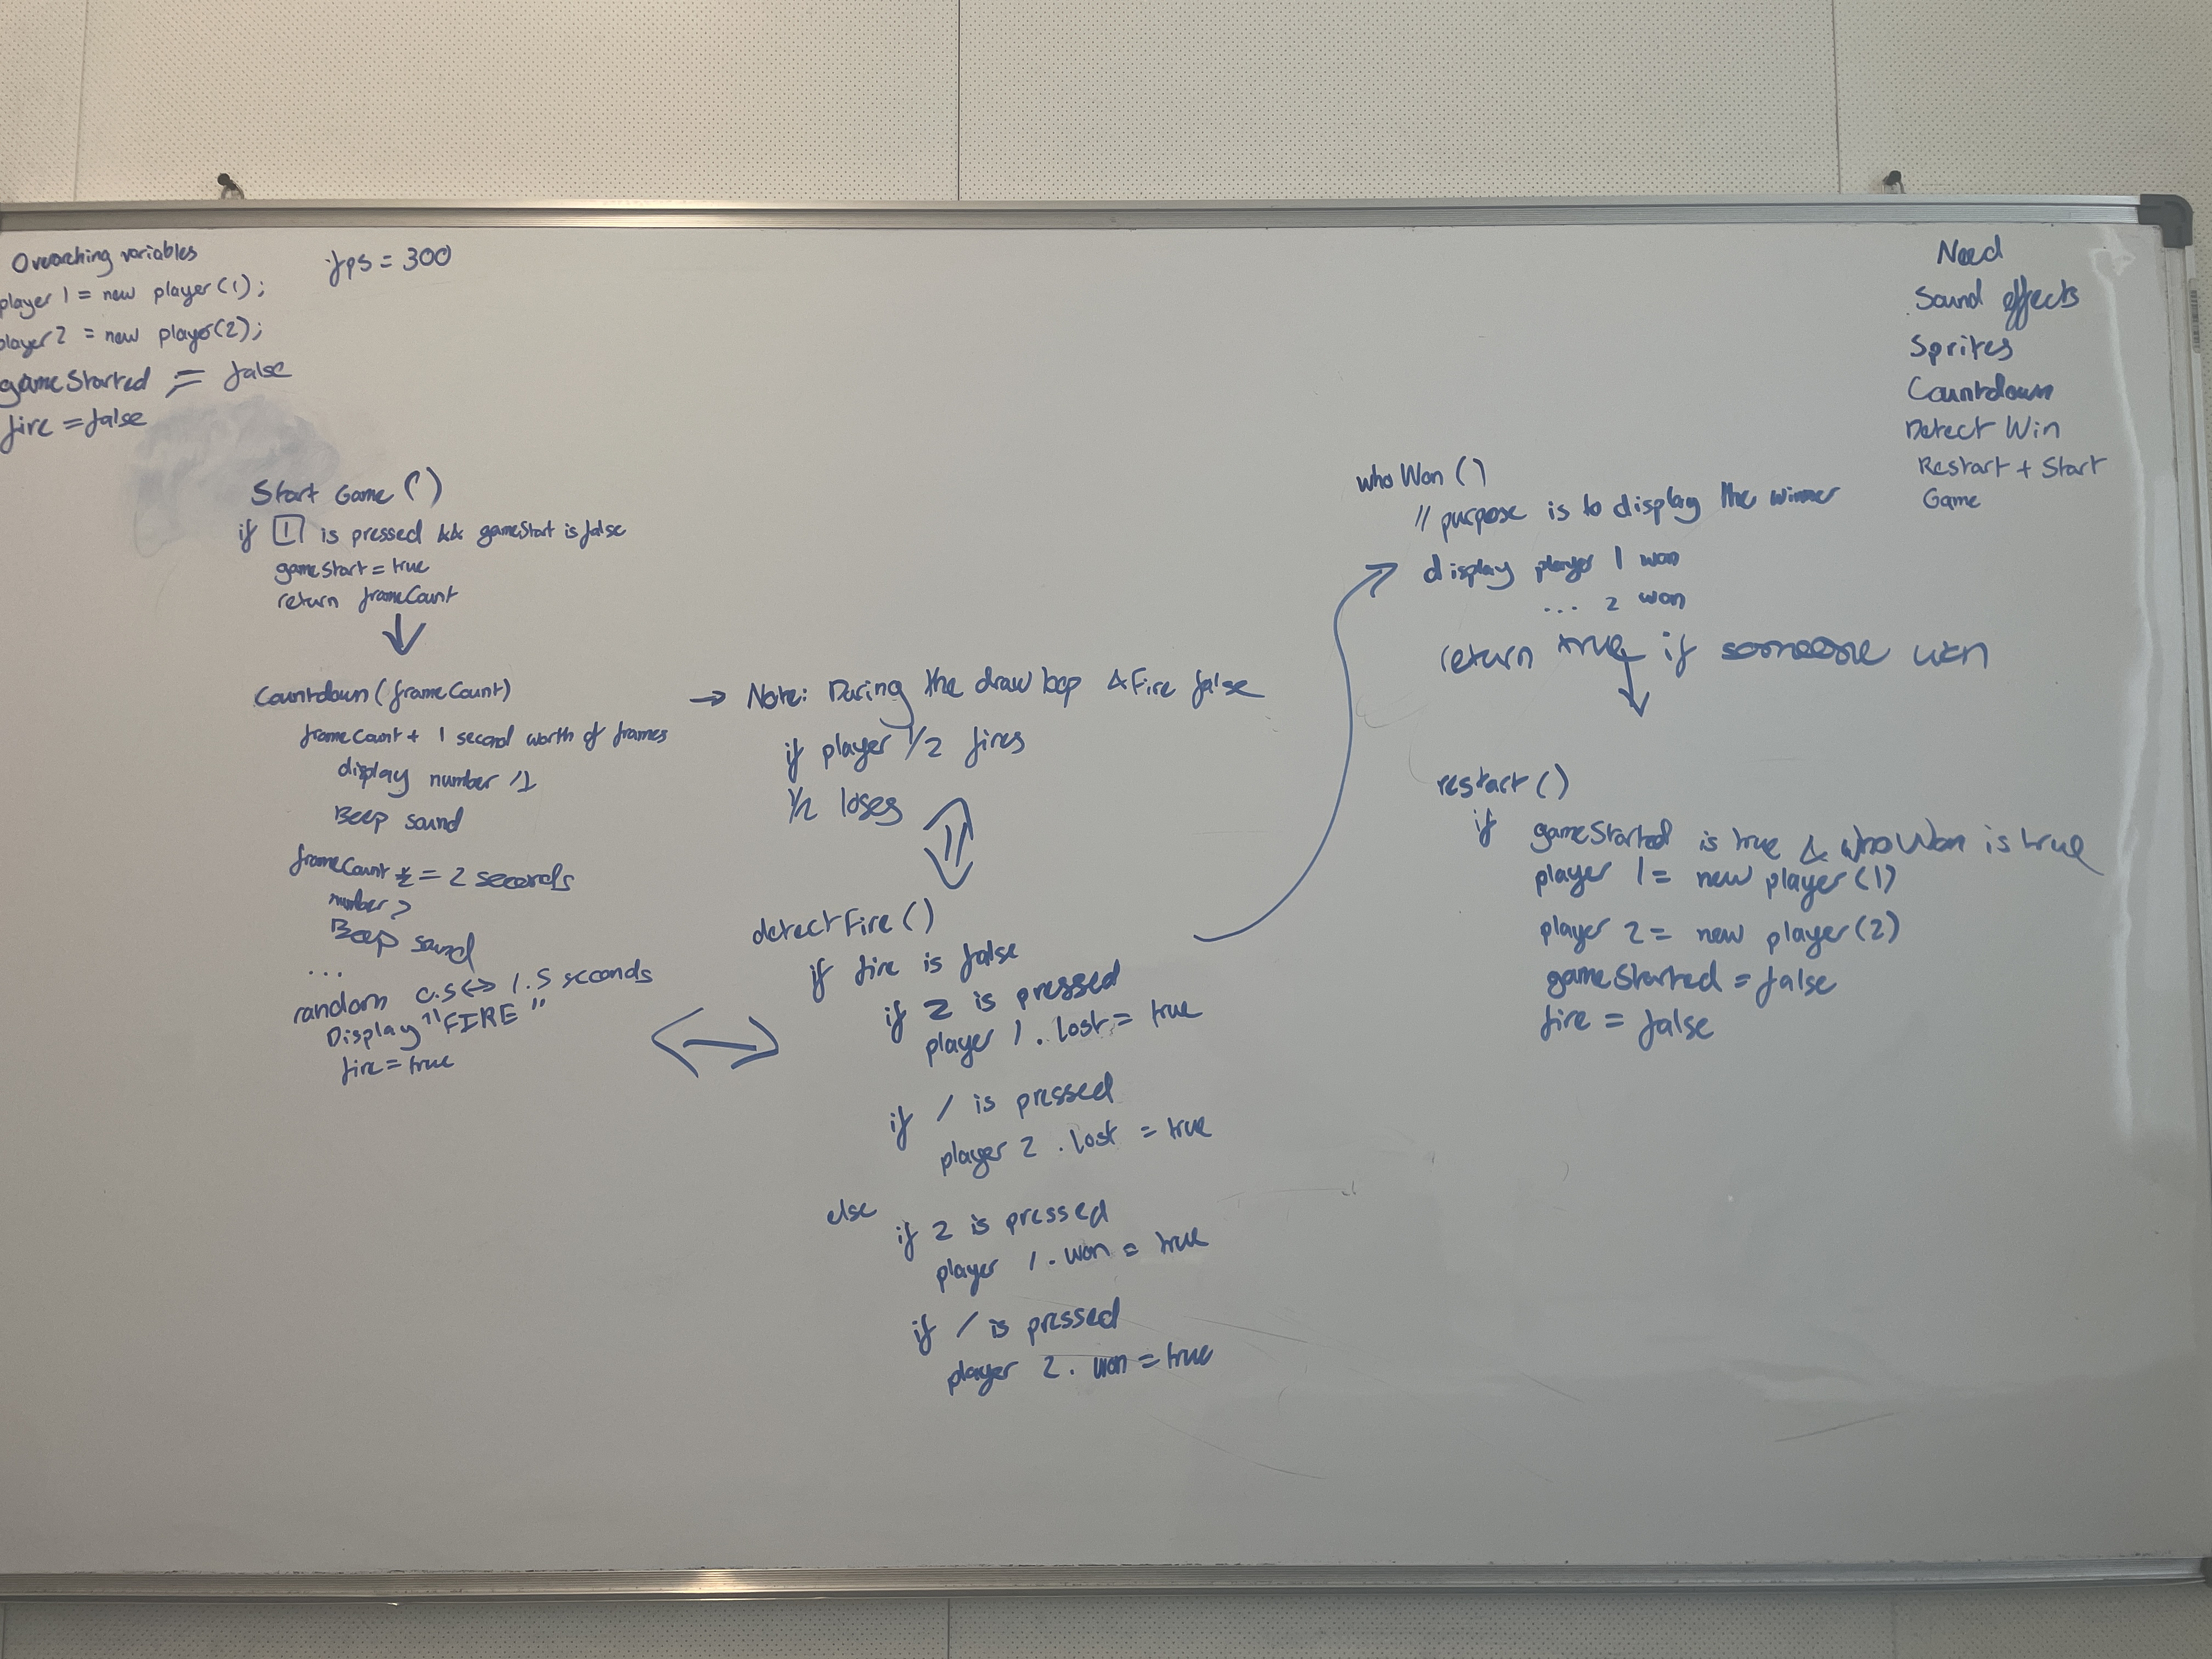 Overarching variables
player 1 = new player (1);
player 2 = new player(2);
gameStarted = false
fire = false
fps = 300
Start Game ()
if 1 is pressed && gameStart is false
gameStart = true
return frameCount
Countdown (frameCount)
frameCount + 1 second worth of frames
display number 1
Beep sound
frameCount = 2 seconds
number
Beep sound
...
random 0.5 ↔ 1.5 seconds
Display "FIRE"
fire = true
→ Note: During the draw loop & Fire false
if player 1/2 fires
1/2 loses
detectFire ()
if fire is false
if 2 is pressed
player 1 . lost = true
if / is pressed
player 2 . lost = true
else
if 2 is pressed
player 1 . won = true
if / is pressed
player 2 . won = true
who Won ()
// purpose is to display the winner
display player 1 won
... 2 won
return true if someone won
restart ()
if gameStarted is true & whoWon is true
player 1 = new player (1)
player 2 = new player (2)
gameStarted = false
fire = false
Need
Sound effects
Sprites
Countdown
Detect Win
Restart + Start
Game